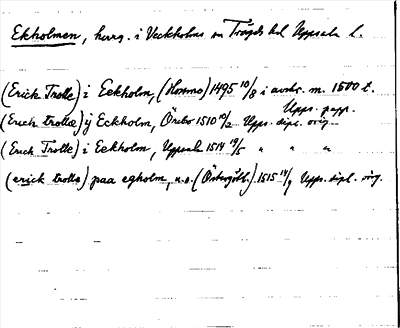 Ekholmen, herrg. i Veckholms sn Trögds hd Uppsala l.
(Erick Trolle) i Eckholm, (Hornmo) 1495 10/8 i avskr. m. 1500 t. Upps. papp.
(Erich trolle) ÿ Eckholm, Örebo 1510 10/2 Upps. dipl. orig.
(Erich Trolle) i Eekholm, Uppsala 1514 19/5 " " "
(erick trolle) paa egholm, u.o. (Östergötl.) 1515 14/9 Upps. dipl. orig.